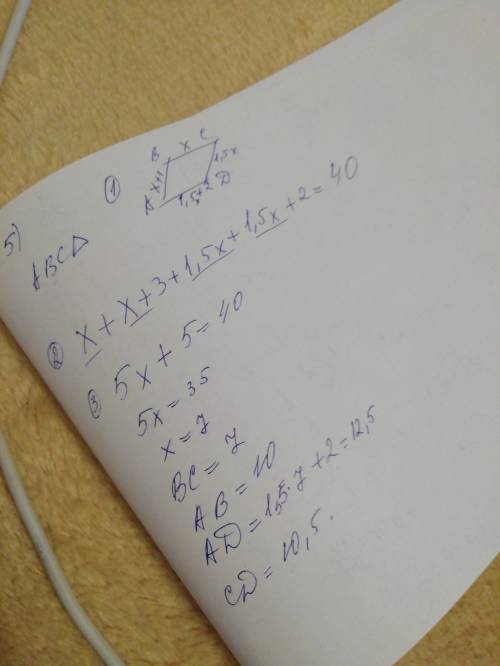 5)
ABCD
①
B x C
x+3
1,5x
A 1,5x+2 D
② x + x + 3 + 1,5x + 1,5x + 2 = 40
③ 5x + 5 = 40
5x = 35
x = 7
BC = 7
AB = 10
AD = 1,5 · 7 + 2 = 12,5
CD = 10,5.